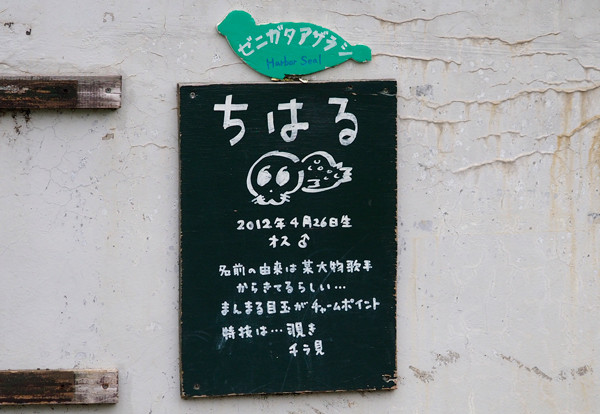 ゼニガタアザラシ
Harbor Seal
ちはる
2012年4月26日生
オス♂
名前の由来は某大物歌手
からきてるらしい…
まんまる目玉がチャームポイント
特技は…覗き
チラ見